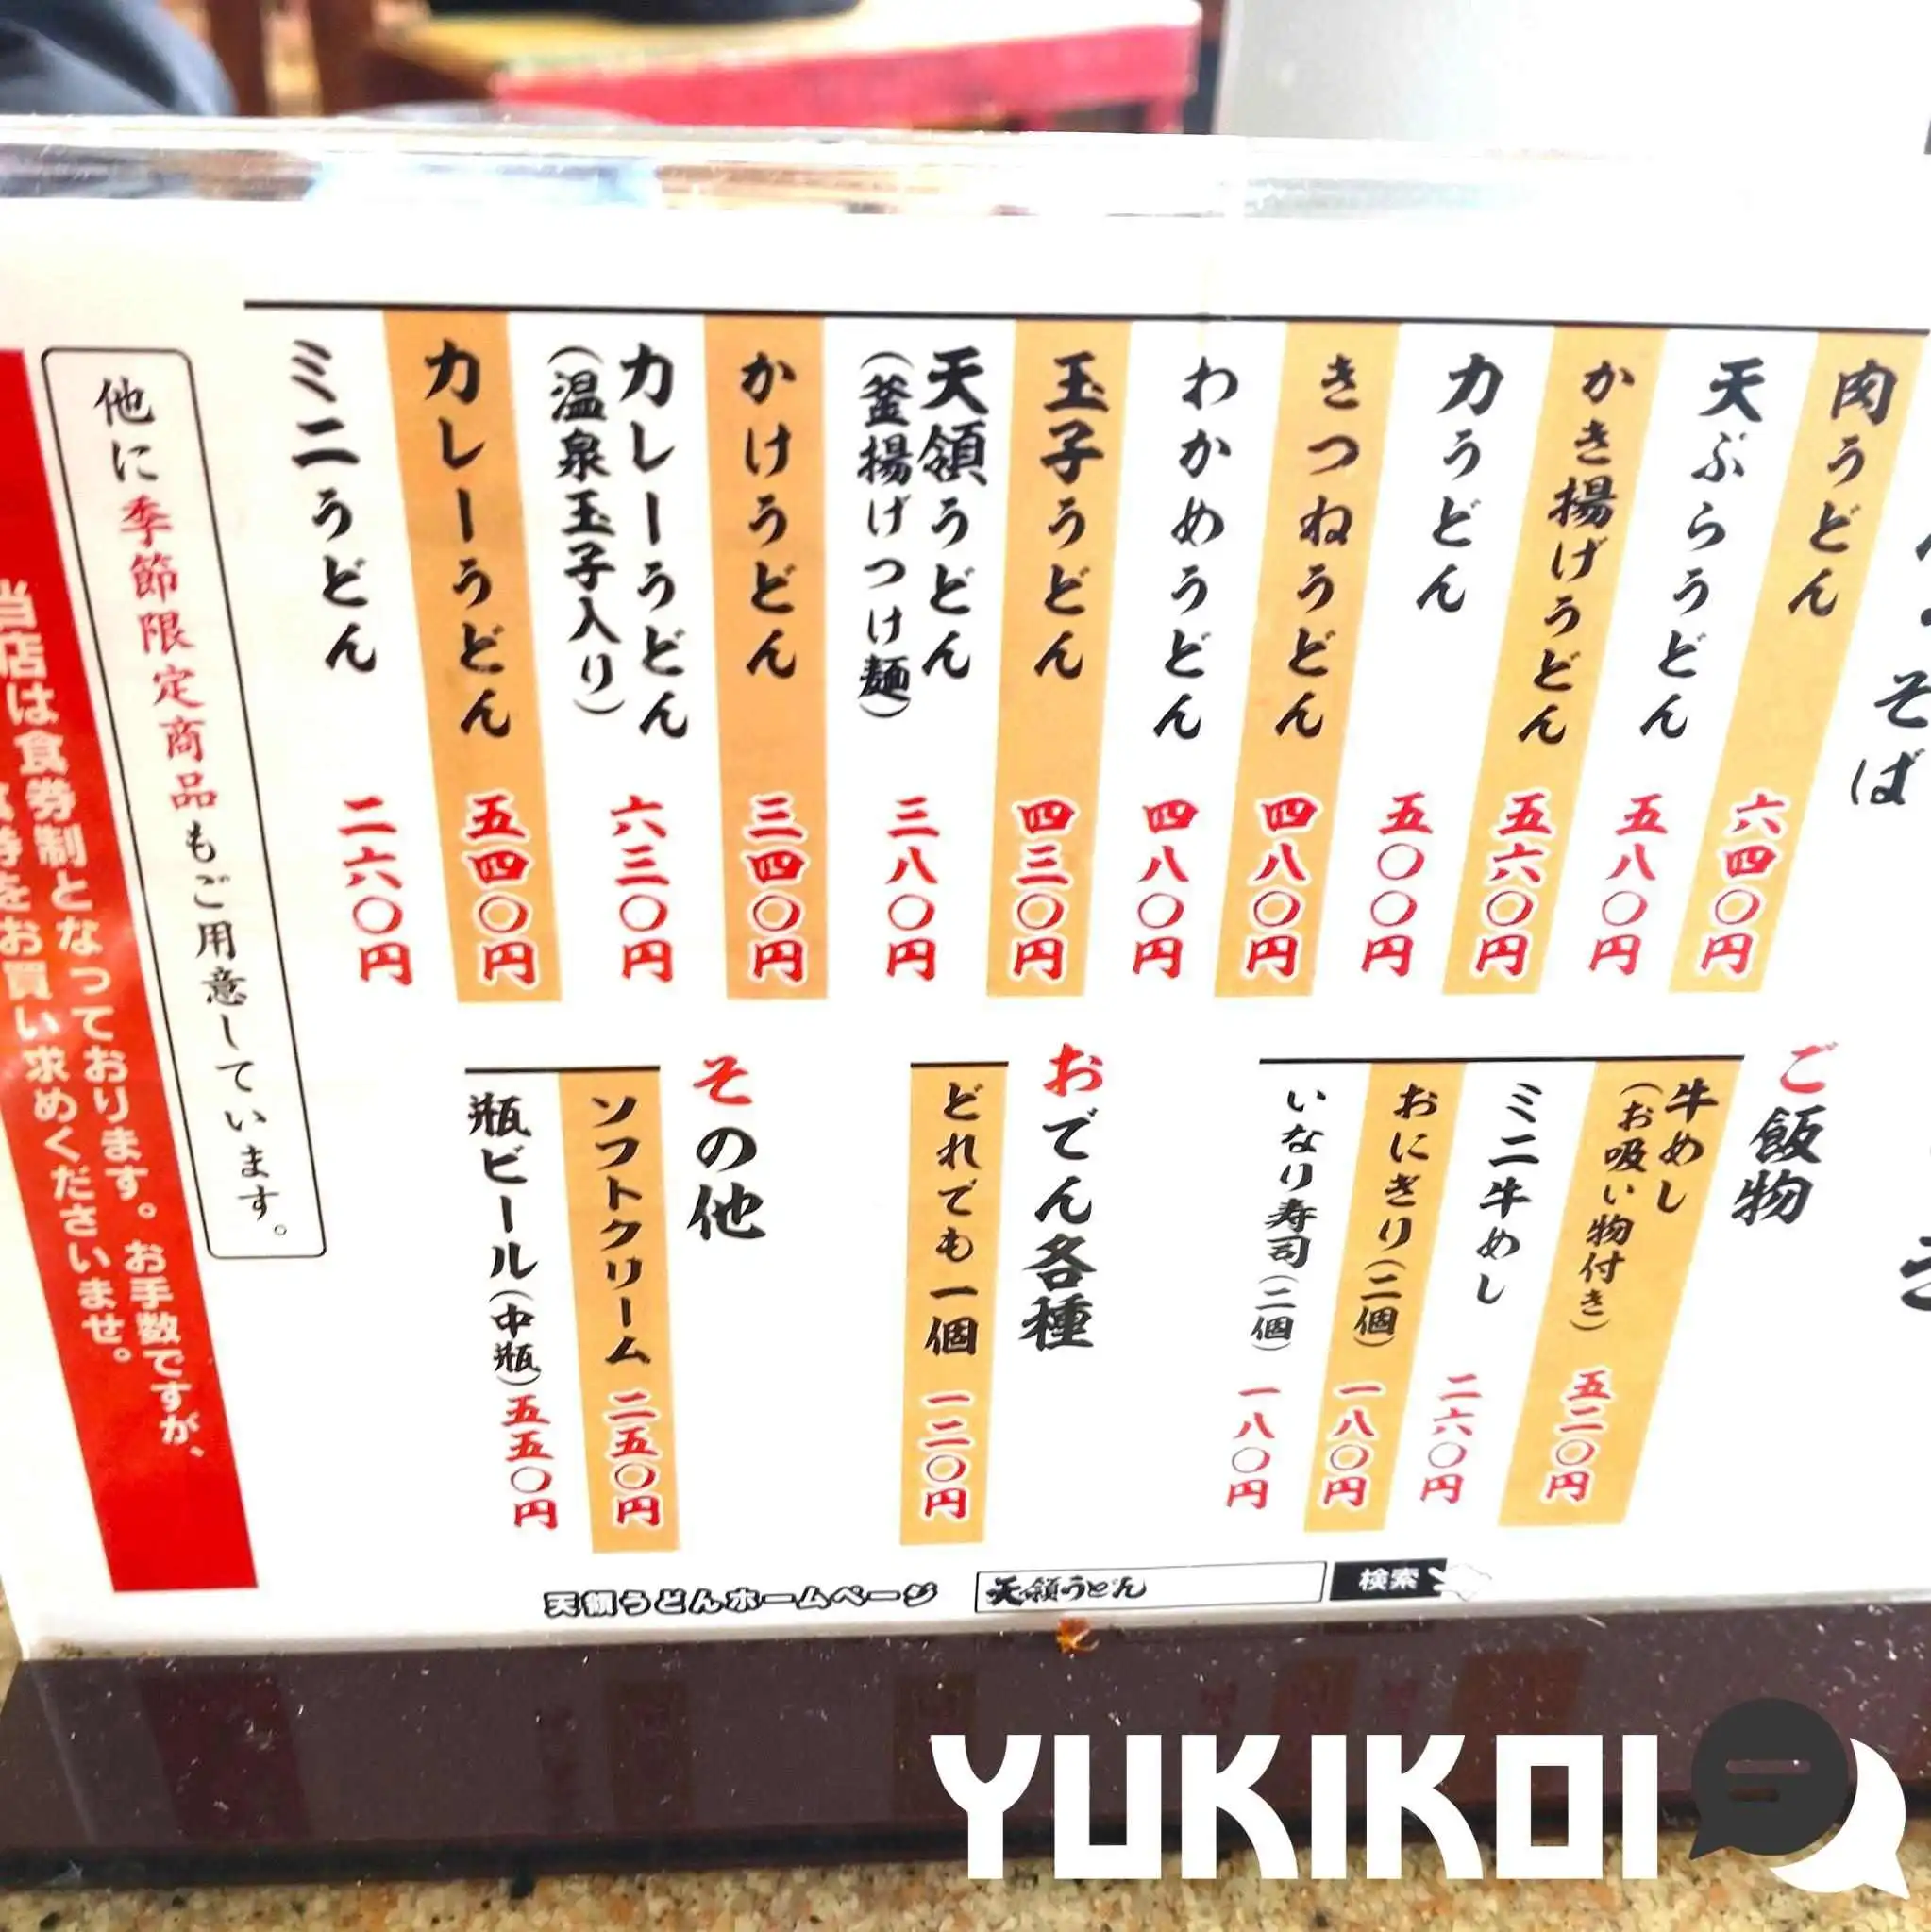 そば
肉うどん 六四〇円
天ぷらうどん 五八〇円
かき揚げうどん 五六〇円
力うどん 五〇〇円
きつねうどん 四八〇円
わかめうどん 四八〇円
玉子うどん 四三〇円
天領うどん
(釜揚げつけ麺) 三八〇円
かけうどん 三四〇円
カレーうどん
(温泉玉子入り) 六三〇円
カレーうどん 五四〇円
ミニうどん 二六〇円
ご飯物
牛めし
(お吸い物付き) 五二〇円
ミニ牛めし 二六〇円
おにぎり(二個) 一八〇円
いなり寿司(二個) 一八〇円
おでん各種
どれでも一個 一二〇円
その他
ソフトクリーム 二五〇円
瓶ビール(中瓶) 五五〇円
他に季節限定商品もご用意しています。
当店は食券制となっております。お手数ですが、
券をお買い求めくださいませ。
天領うどんホームページ 天領うどん 検索
YUKIKOI